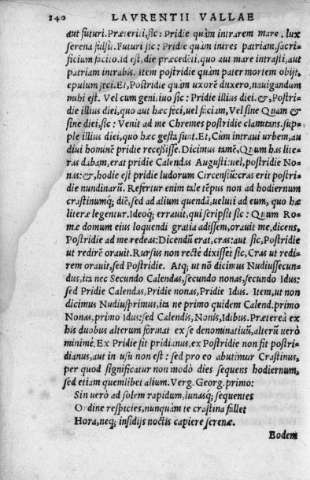 140 LAVRENTII VALLAE
aut futuri. Præteriti, sic: Pridie quàm intrarem mare, lux
serena fulsit. Futuri sic: Pridie quàm intres patriam, sacri-
ficium facito. id est, die præcedēti, quo aut mare intrasti, aut
patriam intrabis. Item postridie quàm pater mortem obijt,
epulum feci. Et, Postridie quàm uxorē duxero, nauigandum
mihi est. Vel cum geni iuo sic: Pridie illius diei. &, Postri-
die illius diei, quo aut hæc feci, uel faciam, Vel sine Quàm &
sine diei, sic: Venit ad me Chremes postridie clamitans, sup-
ple illius diei, quo hæc gesta sunt. Et, Cùm intraui urbem, au
diui hominē pridie recessisse. Dicimus tamē, Quum has lite-
ras dabam, erat pridie Calendas Augusti: uel, postridie No-
nas: &, hodie est pridie ludorum Circensiū: cras erit postri-
die nundinarū. Refertur enim tale tēpus non ad hodiernum
crastinumq́; diē, sed ad alium quendā, ueluti ad eum, quo hæ
literæ legentur. Ideoq́; errauit, qui scripsit sic: Quum Ro-
mæ domum eius loquendi gratia adissem, orauit me, dicens,
Postridie ad me redeas: Dicendū erat, cras: aut sic, Postridie
ut redirē orauit. Rursus non rectè dixisset sic, Cras ut redi-
rem orauit, sed Postridie. Atq́; ut nō dicimus Nudiussecun-
dus, ita nec Secundo Calendas, secundo nonas, secundo Idus:
sed Pridie Calendas, Pridie nonas, Pridie Idus. Item, ut non
dicimus Nudiusprimus, ita ne primo quidem Calend. primo
Nonas, primo Idus: sed Calendis, Nonis, Idibus. Præterea ex
his duobus alterum format ex se denominatiuū, alterū uerò
minimè. Ex Pridie fit pridianus, ex Postridie non fit postri-
dianus, aut in usu non est: sed pro eo abutimur Crastinus,
per quod significatur non modò dies sequens hodiernum,
sed etiam quemlibet alium. Verg. Georg. primo:
Sin uerò ad solem rapidum, lunasq́; sequentes
Ordine respicies, nunquàm te crastina fallet
Hora, neq́; insidijs noctis capiere serenæ.
Eodem